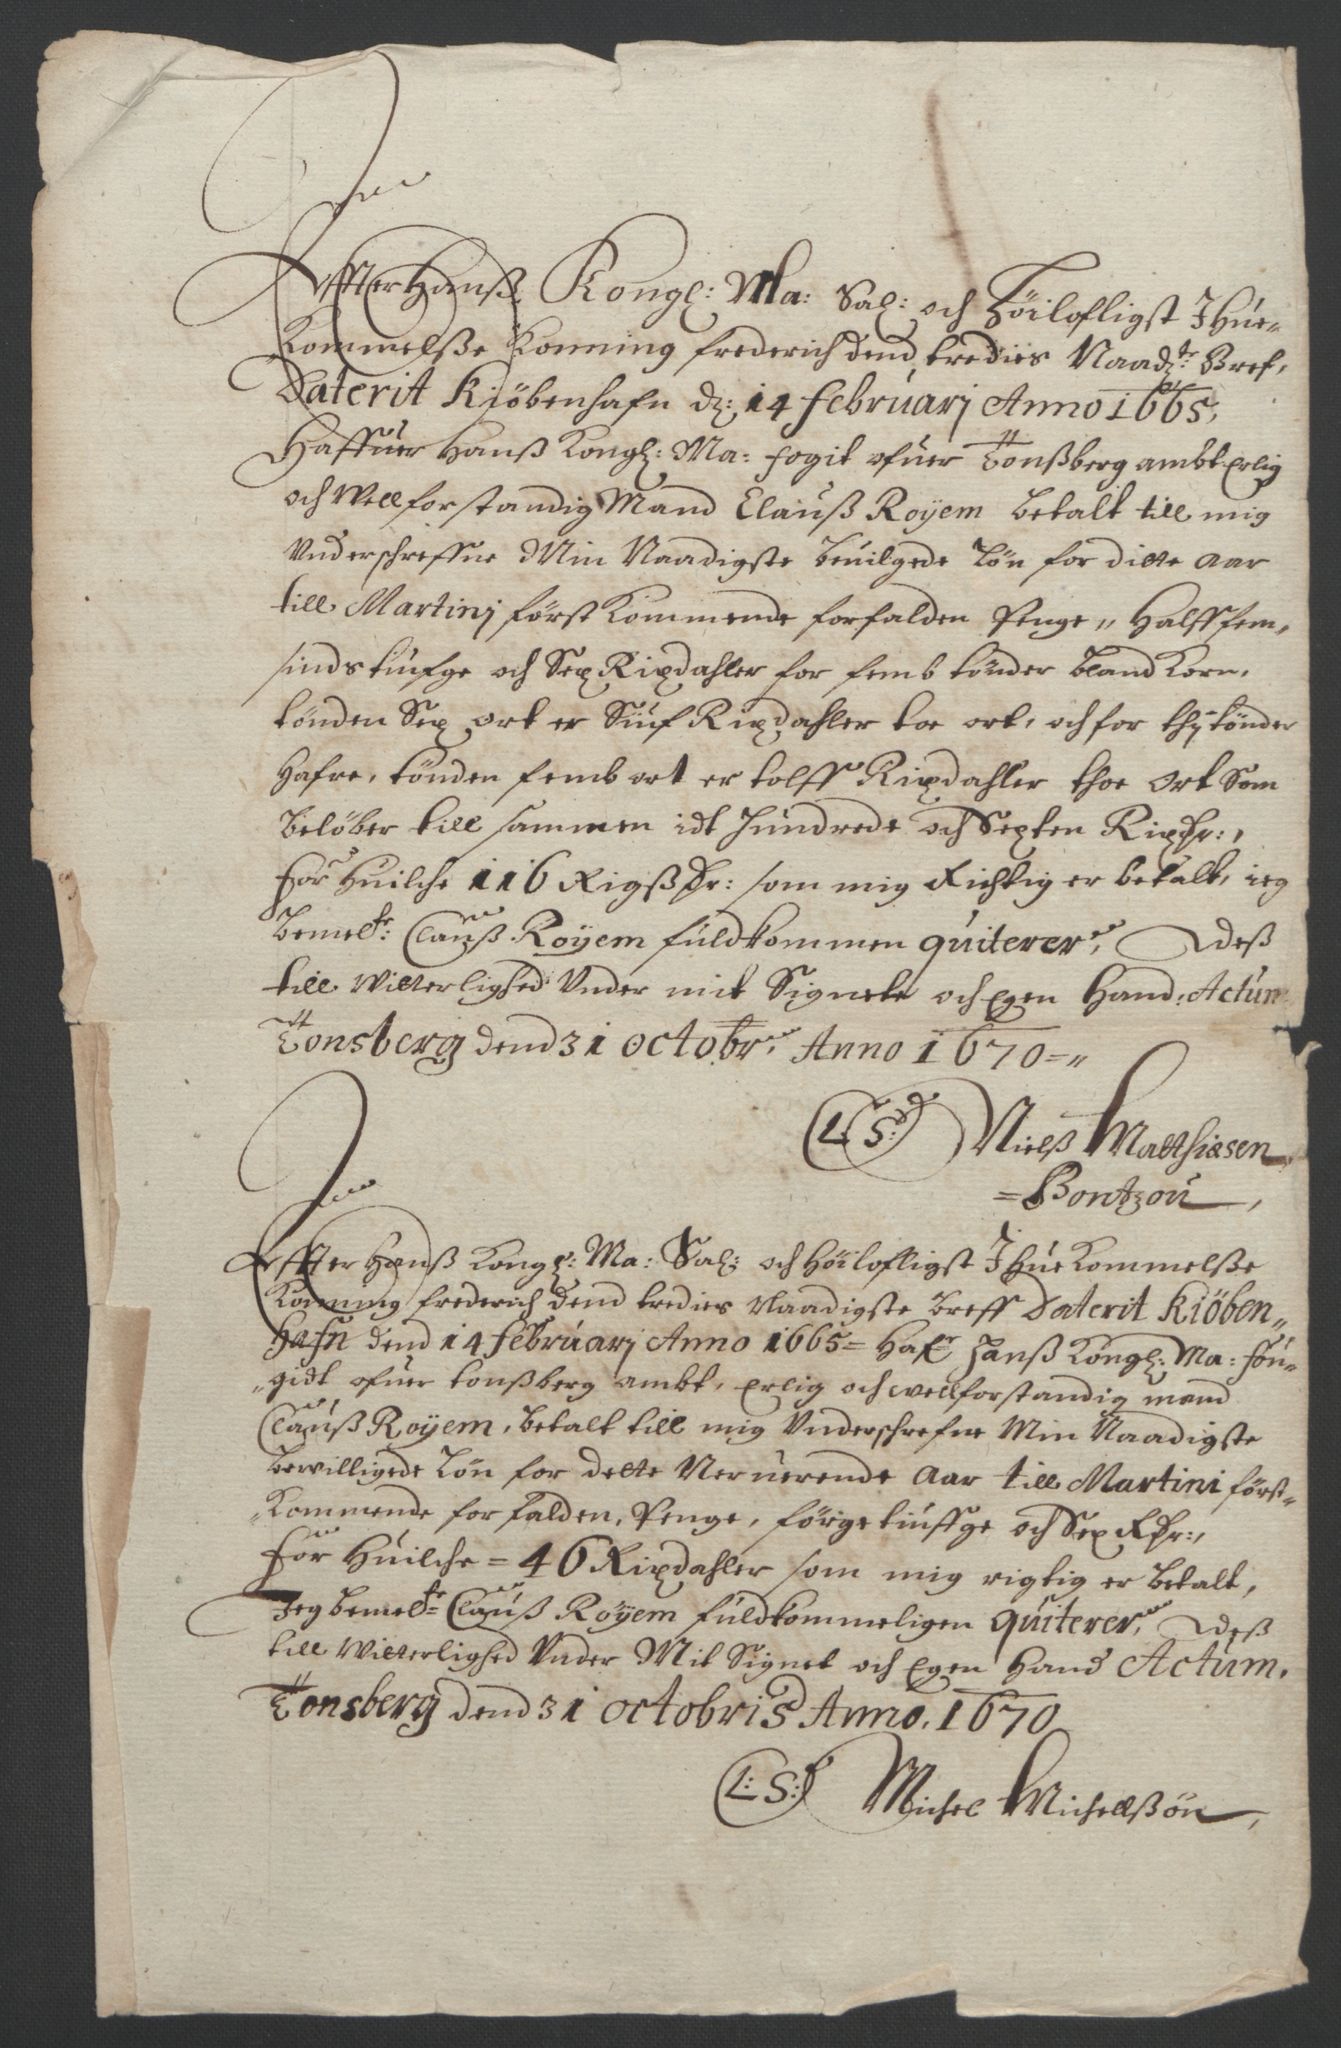 Effter Hanß Kongl: Ma: Sal: och Höilofligst Ihue-
Kommelße Konning frederich dend tredies Naadz:te Bref,
Daterit Kiöbenhafn d: 14 februarj Anno 1665,
Haffuer Hanß Kongl: Ma: fogit ofuer Tonßberg ambt Erlig
och Wellforstandig Mand Clauß Royem betalt till mig
Vnderschreffne Min Naadigste beuilgede Løn for ditte Aar
till Martinj først Kommende forfalden Penge,, Halfffem,
sinds tiufge och Sex Rixdahler for femb tønder bland Korn,
tønden Sex ort er Siuf Rixdahler toe ort, och for thj tønder
Hafre, tønden femb ort er tolff Rixdahler thoe Ort Som
beløber till sammen idt Hundrede och Sexten Rixdr:,
for Huilche 116 Rigßdr: som mig Richtig er betalt, ieg
bemelte: Clauß Royem fuldkommen quiterer, Deß
till Witterlighed Vnder mit Signete och Egen Hand: Actum
Tonsberg dend 31 octobr, Anno 1670=,,
L: S: Nielß Matthiesen
=Bontzou,
Effter Hanß Kongl: Ma: Sal: och Höilofligst Ihue Kommelße
Konning frederich dend tredies Naadigste breff Daterit Kiöben,,
Hafn dend 14 februarj Anno 1665= Hafr Hanß Kongl: Ma: fou-
,,gidt ofuer tonßberg ambt, erlig och wellforstandig mand
Clauß Royem, betalt till mig Vnderschrefne Min Naadigste
bewilligede Løn for dette Neruerende Aar till Martini først-
,,Kommende forfalden, Penge, førgetiuffge och Sex Rdr:,
for Huilche = 46 Rixdahler som mig rigtig er betalt,
Jeg bemelte Clauß Royem fuldkommeligen quiterer, Deß
till Witterlighed Vnder Mit Signet och Egen Hand Actum,
Tonsberg dend 31 octobris Anno, 1670
L: S: Michel Michellßøn,